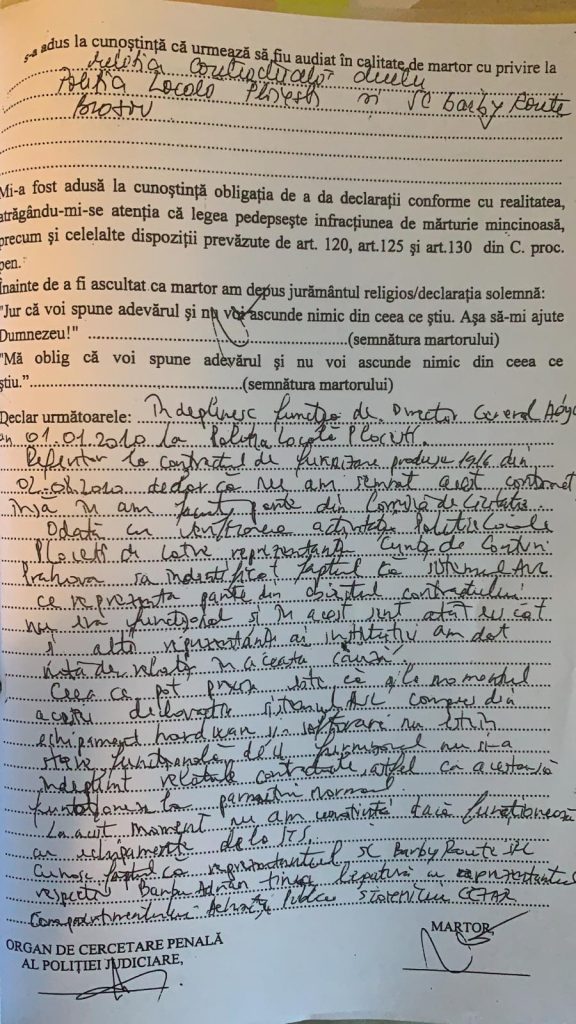 s-a adus la cunoștință că urmează să fiu audiat în calitate de martor cu privire la
relația contractelor
Poliția Locală Ploiești și SC Barby Route
Brașov
Mi-a fost adusă la cunoștință obligația de a da declarații conforme cu realitatea,
atrăgându-mi-se atenția că legea pedepsește infracțiunea de mărturie mincinoasă,
precum și celelalte dispoziții prevăzute de art. 120, art.125 și art.130 din C. proc.
pen.
Înainte de a fi ascultat ca martor am depus jurământul religios/declarația solemnă:
"Jur că voi spune adevărul și nu voi ascunde nimic din ceea ce știu. Așa să-mi ajute
Dumnezeu!" (semnătura martorului)
"Mă oblig că voi spune adevărul și nu voi ascunde nimic din ceea ce
știu.” (semnătura martorului)
Declar următoarele: Îndeplinesc funcția de Director General
01.01.2010 la Poliția Locală Ploiești.
Referitor la contractul de furnizare produse din
02.08.2010 declar că nu am semnat acest contract
însă am făcut parte din Comisia de
Odată cu verificarea activității Poliției Locale
Ploiești de către reprezentanții Curții de Conturi
Prahova s-a identificat faptul că sistemul AVL
ce reprezenta parte din obiectul contractului
nu era funcțional și în acest sens atât eu cât
și alți reprezentanți ai instituției am dat
notă de relații în această cauză.
Ceea ce pot preciza este că și la momentul
acestei declarații sistemul AVL compus din
echipament hardware și software nu este în
stare funcțională, deci furnizorul nu și-a
îndeplinit relațiile contractuale, astfel ca acesta să
funcționeze la parametri normali.
La acest moment nu am cunoștință dacă funcționează
cu echipamente de la STS.
Cunosc faptul că reprezentantul SC Barby Route SRL
respectiv Adrian ținea legătura cu reprezentantul
Compartimentului
ORGAN DE CERCETARE PENALĂ
AL POLIȚIEI JUDICIARE,
MARTOR,